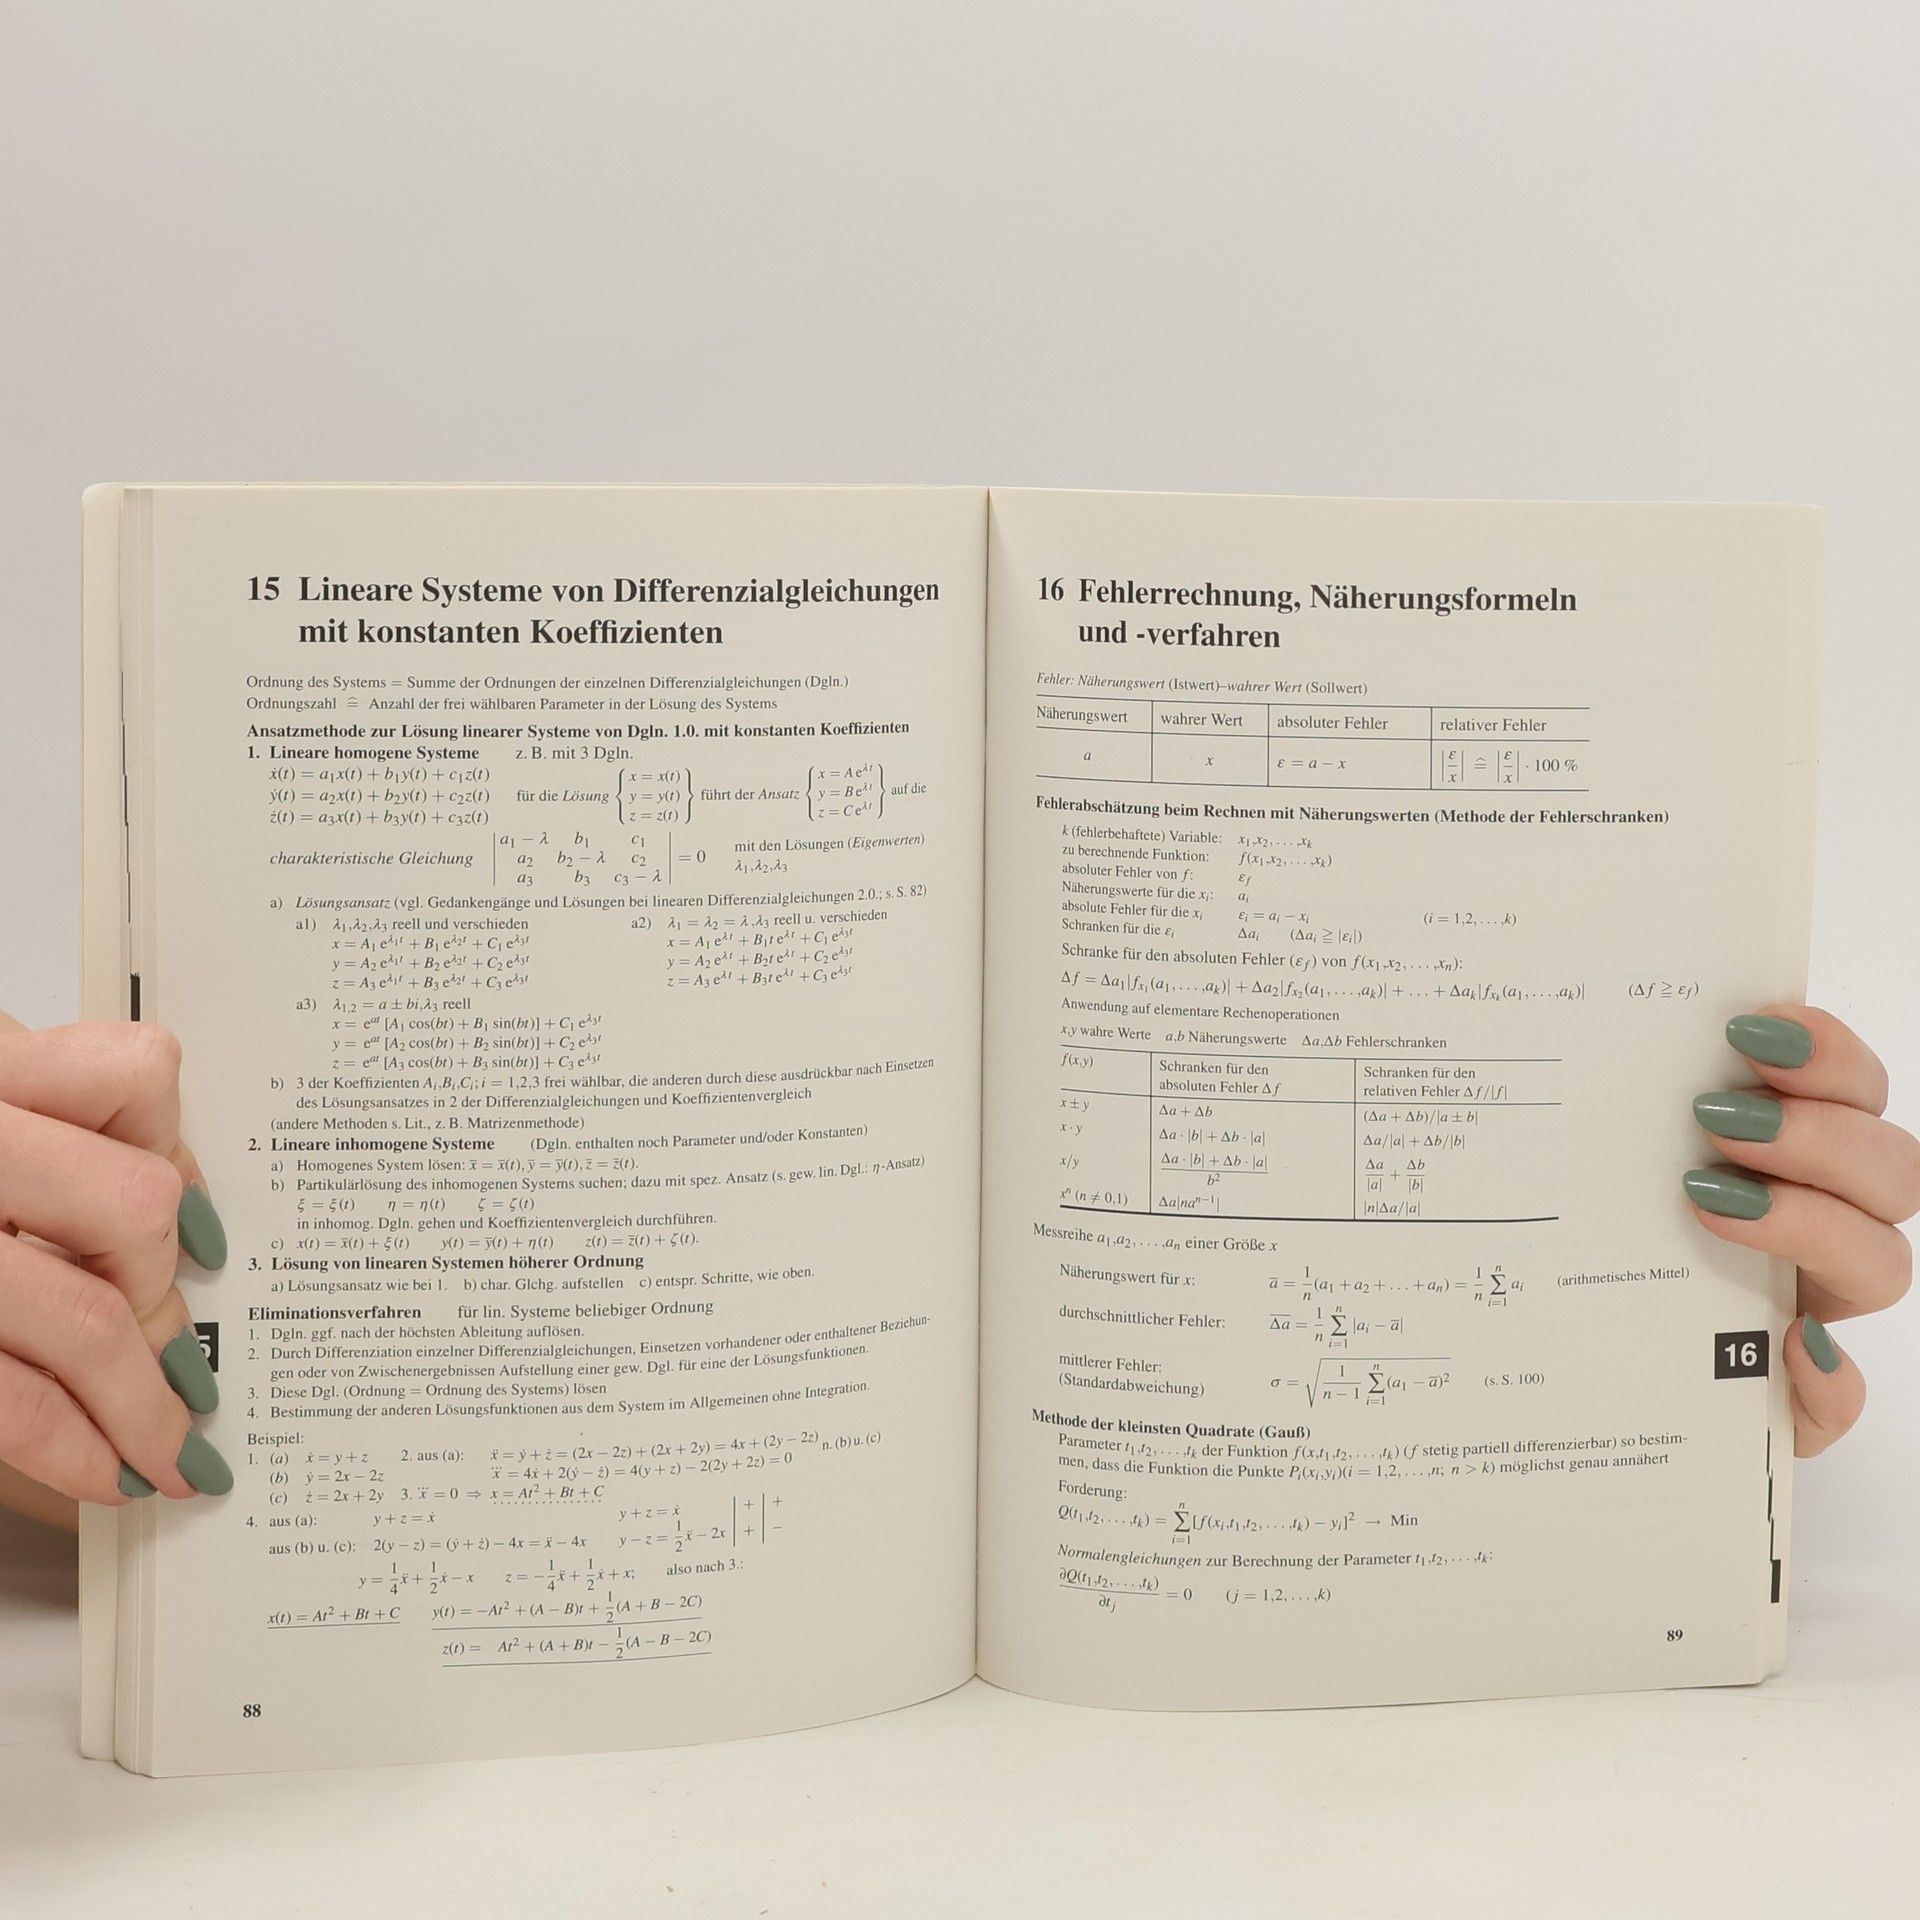 15 Lineare Systeme von Differenzialgleichungen
mit konstanten Koeffizienten
Ordnung des Systems = Summe der Ordnungen der einzelnen Differenzialgleichungen (Dgln.)
Ordnungszahl ≙ Anzahl der frei wählbaren Parameter in der Lösung des Systems
Ansatzmethode zur Lösung linearer Systeme von Dgln. 1.0. mit konstanten Koeffizienten
1. Lineare homogene Systeme z. B. mit 3 Dgln.
ẋ(t) = a₁x(t) + b₁y(t) + c₁z(t)
ẏ(t) = a₂x(t) + b₂y(t) + c₂z(t) für die Lösung { x = x(t) y = y(t) z = z(t) } führt der Ansatz { x = A e^λt y = B e^λt z = C e^λt } auf die
ż(t) = a₃x(t) + b₃y(t) + c₃z(t)
charakteristische Gleichung | a₁ − λ b₁ c₁ a₂ b₂ − λ c₂ a₃ b₃ c₃ − λ | = 0 mit den Lösungen (Eigenwerten) λ₁,λ₂,λ₃
a) Lösungsansatz (vgl. Gedankengänge und Lösungen bei linearen Differenzialgleichungen 2.0.; s. S. 82)
a1) λ₁,λ₂,λ₃ reell und verschieden a2) λ₁ = λ₂ = λ,λ₃ reell u. verschieden
x = A₁ e^λ₁t + B₁ e^λ₂t + C₁ e^λ₃t x = A₁ e^λt + B₁t e^λt + C₁ e^λ₃t
y = A₂ e^λ₁t + B₂ e^λ₂t + C₂ e^λ₃t y = A₂ e^λt + B₂t e^λt + C₂ e^λ₃t
z = A₃ e^λ₁t + B₃ e^λ₂t + C₃ e^λ₃t z = A₃ e^λt + B₃t e^λt + C₃ e^λ₃t
a3) λ₁,₂ = a ± bi,λ₃ reell
x = e^at [A₁ cos(bt) + B₁ sin(bt)] + C₁ e^λ₃t
y = e^at [A₂ cos(bt) + B₂ sin(bt)] + C₂ e^λ₃t
z = e^at [A₃ cos(bt) + B₃ sin(bt)] + C₃ e^λ₃t
b) 3 der Koeffizienten Aᵢ,Bᵢ,Cᵢ; i = 1,2,3 frei wählbar, die anderen durch diese ausdrückbar nach Einsetzen
des Lösungsansatzes in 2 der Differenzialgleichungen und Koeffizientenvergleich
(andere Methoden s. Lit., z. B. Matrizenmethode)
2. Lineare inhomogene Systeme (Dgln. enthalten noch Parameter und/oder Konstanten)
a) Homogenes System lösen: x̄ = x̄(t), ȳ = ȳ(t), z̄ = z̄(t).
b) Partikulärlösung des inhomogenen Systems suchen; dazu mit spez. Ansatz (s. gew. lin. Dgl.: η-Ansatz)
ξ = ξ(t) η = η(t) ζ = ζ(t)
in inhomog. Dgln. gehen und Koeffizientenvergleich durchführen.
c) x(t) = x̄(t) + ξ(t) y(t) = ȳ(t) + η(t) z(t) = z̄(t) + ζ(t).
3. Lösung von linearen Systemen höherer Ordnung
a) Lösungsansatz wie bei 1. b) char. Glchg. aufstellen c) entspr. Schritte, wie oben.
Eliminationsverfahren für lin. Systeme beliebiger Ordnung
1. Dgln. ggf. nach der höchsten Ableitung auflösen.
2. Durch Differenziation einzelner Differenzialgleichungen, Einsetzen vorhandener oder enthaltener Beziehun-
gen oder von Zwischenergebnissen Aufstellung einer gew. Dgl. für eine der Lösungsfunktionen.
3. Diese Dgl. (Ordnung = Ordnung des Systems) lösen
4. Bestimmung der anderen Lösungsfunktionen aus dem System im Allgemeinen ohne Integration.
Beispiel:
1. (a) ẋ = y + z 2. aus (a): ẍ = ẏ + ż = (2x − 2z) + (2x + 2y) = 4x + (2y − 2z) n. (b) u. (c)
(b) ẏ = 2x − 2z x⃛ = 4ẋ + 2(ẏ − ż) = 4(y + z) − 2(2y + 2z) = 0
(c) ż = 2x + 2y 3. x⃛ = 0 ⇒ x = At² + Bt + C
4. aus (a): y + z = ẋ y + z = ẋ | + | +
aus (b) u. (c): 2(y − z) = (ẏ + ż) − 4x = ẍ − 4x y − z = 1/2 ẍ − 2x | + | −
y = 1/4 ẍ + 1/2 ẋ − x z = −1/4 ẍ + 1/2 ẋ + x; also nach 3.:
x(t) = At² + Bt + C y(t) = −At² + (A − B)t + 1/2 (A + B − 2C)
z(t) = At² + (A + B)t − 1/2 (A − B − 2C)
88
5
16 Fehlerrechnung, Näherungsformeln
und -verfahren
Fehler: Näherungswert (Istwert)–wahrer Wert (Sollwert)
Näherungswert wahrer Wert absoluter Fehler relativer Fehler
a x ε = a − x |ε/x| ≙ |ε/x| · 100 %
Fehlerabschätzung beim Rechnen mit Näherungswerten (Methode der Fehlerschranken)
k (fehlerbehaftete) Variable: x₁,x₂,...,xₖ
zu berechnende Funktion: f(x₁,x₂,...,xₖ)
absoluter Fehler von f: ε_f
Näherungswerte für die xᵢ: aᵢ
absolute Fehler für die xᵢ εᵢ = aᵢ − xᵢ (i = 1,2,...,k)
Schranken für die εᵢ Δaᵢ (Δaᵢ ≧ |εᵢ|)
Schranke für den absoluten Fehler (ε_f) von f(x₁,x₂,...,xₙ):
Δf = Δa₁|f_x₁(a₁,...,aₖ)| + Δa₂|f_x₂(a₁,...,aₖ)| + ... + Δaₖ|f_xₖ(a₁,...,aₖ)| (Δf ≧ ε_f)
Anwendung auf elementare Rechenoperationen
x,y wahre Werte a,b Näherungswerte Δa,Δb Fehlerschranken
f(x,y) Schranken für den absoluten Fehler Δf Schranken für den relativen Fehler Δf/|f|
x ± y Δa + Δb (Δa + Δb)/|a ± b|
x · y Δa · |b| + Δb · |a| Δa/|a| + Δb/|b|
x/y (Δa · |b| + Δb · |a|)/b² Δa/|a| + Δb/|b|
xⁿ (n ≠ 0,1) Δa|naⁿ⁻¹| |n|Δa/|a|
Messreihe a₁,a₂,...,aₙ einer Größe x
Näherungswert für x: ā = 1/n (a₁ + a₂ + ... + aₙ) = 1/n Σⁿᵢ₌₁ aᵢ (arithmetisches Mittel)
durchschnittlicher Fehler: Δa̅ = 1/n Σⁿᵢ₌₁ |aᵢ − ā|
mittlerer Fehler:
(Standardabweichung) σ = √(1/(n − 1) Σⁿᵢ₌₁ (a₁ − ā)²) (s. S. 100)
Methode der kleinsten Quadrate (Gauß)
Parameter t₁,t₂,...,tₖ der Funktion f(x,t₁,t₂,...,tₖ) (f stetig partiell differenzierbar) so bestim-
men, dass die Funktion die Punkte Pᵢ(xᵢ,yᵢ)(i = 1,2,...,n; n > k) möglichst genau annähert
Forderung:
Q(t₁,t₂,...,tₖ) = Σⁿᵢ₌₁ [f(xᵢ,t₁,t₂,...,tₖ) − yᵢ]² → Min
Normalengleichungen zur Berechnung der Parameter t₁,t₂,...,tₖ:
∂Q(t₁,t₂,...,tₖ)/∂tⱼ = 0 (j = 1,2,...,k)
89
16